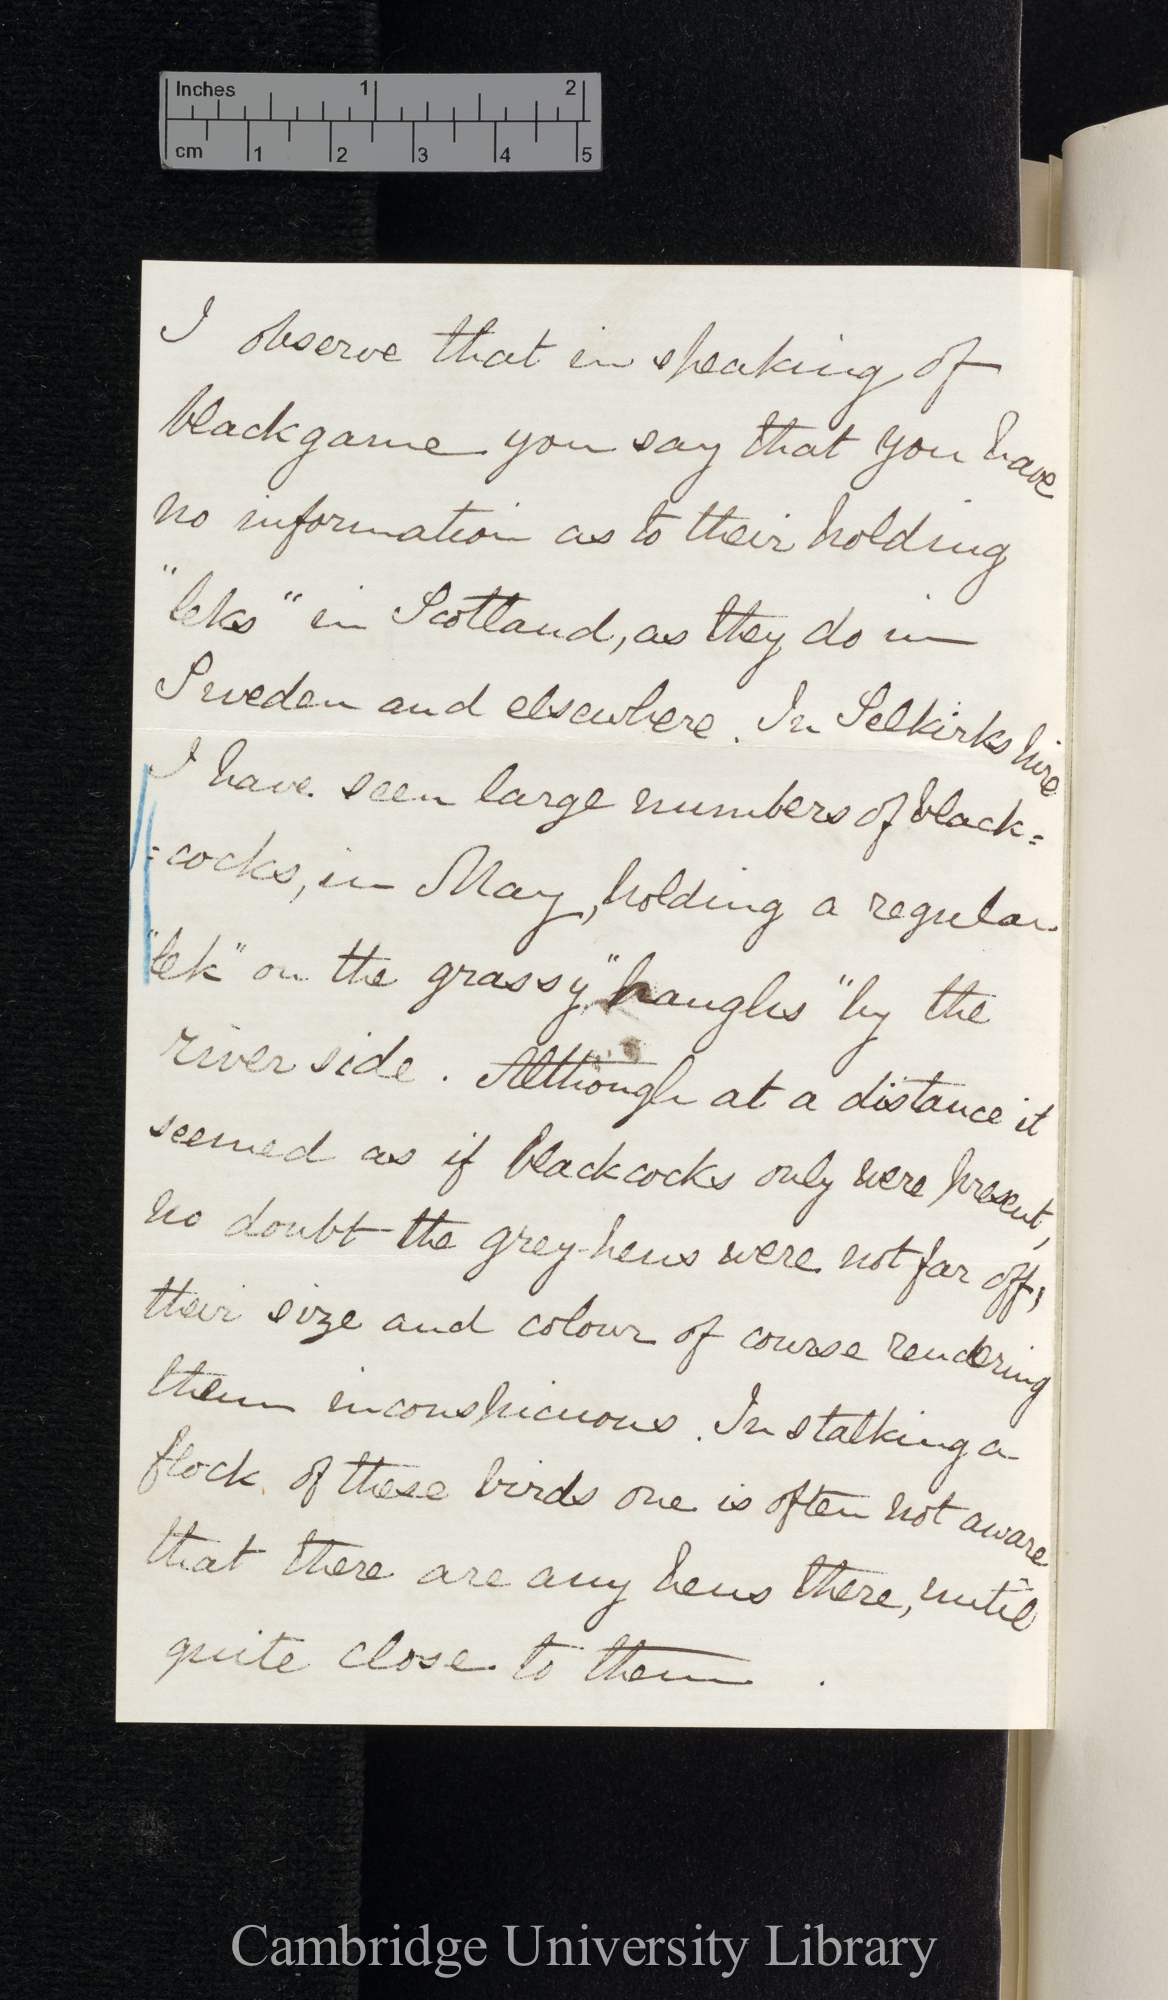 Inches 1 2
cm 1 2 3 4 5
I observe that in speaking of
blackgame you say that you have
no information as to their holding
"leks" in Scotland, as they do in
Sweden and elsewhere. In Selkirkshire
I have seen large numbers of black=
=cocks, in May, holding a regular
"lek" on the grassy "haughs" by the
river side. Although at a distance it
seemed as if blackcocks only were present,
no doubt the grey-hens were not far off,
their size and colour of course rendering
them inconspicuous. In stalking a
flock of these birds one is often not aware
that there are any hens there, until
quite close to them.
Cambridge University Library